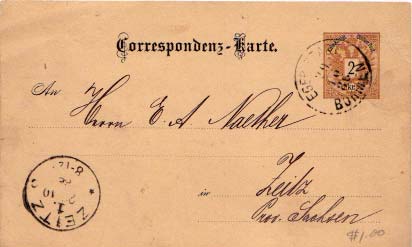 Correspondenz-Karte.
2
EGER
An
Herrn E. A. Naether
in Zeitz
Prov. Sachsen
ZEITZ
1
$1.00